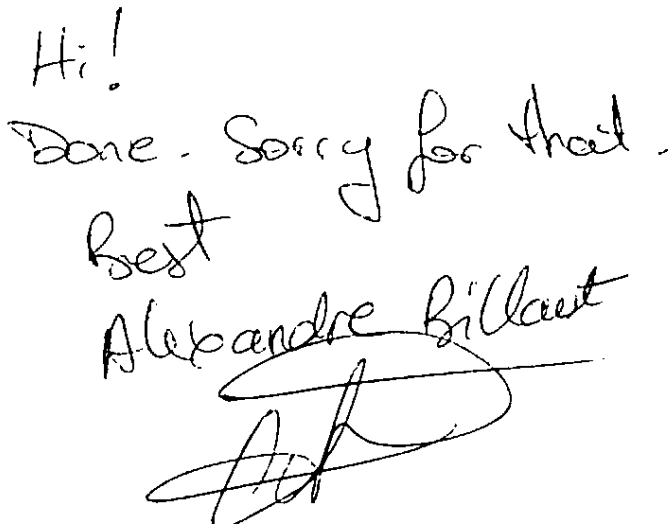 Hi!
Done. Sorry for that.
Best
Alexandre Billaut